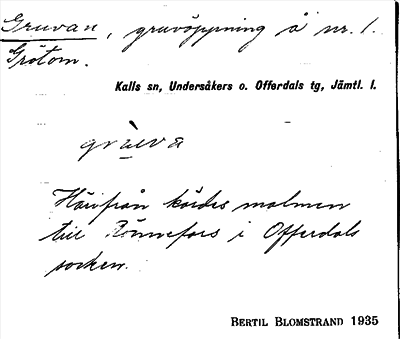 Gruvan, gruvöppning å nr. 1.
Grötom.
Kalls sn, Undersåkers o. Offerdals tg, Jämtl. l.
Härifrån kördes malmen
till Rönnefors i Offerdals
socken.
BERTIL BLOMSTRAND 1935